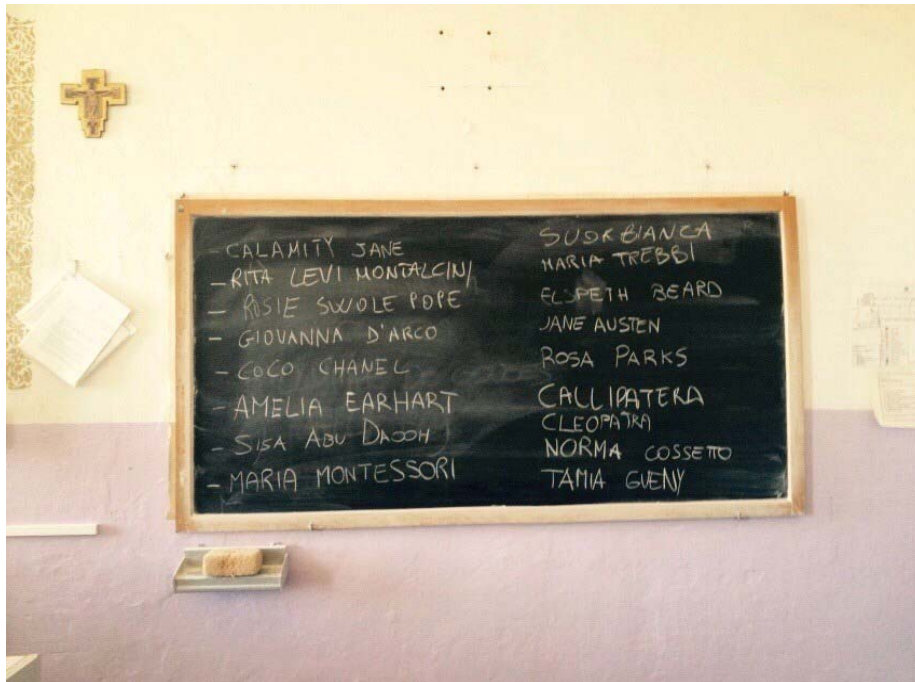 - CALAMITY JANE
- RITA LEVI MONTALCINI
- ROSIE SWOLE POPE
- GIOVANNA D'ARCO
- COCO CHANEL
- AMELIA EARHART
- SISA ABU DAOOH
- MARIA MONTESSORI
SUOR BIANCA
MARIA TREBBI
ELSPETH BEARD
JANE AUSTEN
ROSA PARKS
CALLIPATERA
CLEOPATRA
NORMA COSSETTO
TAMIA GUENY